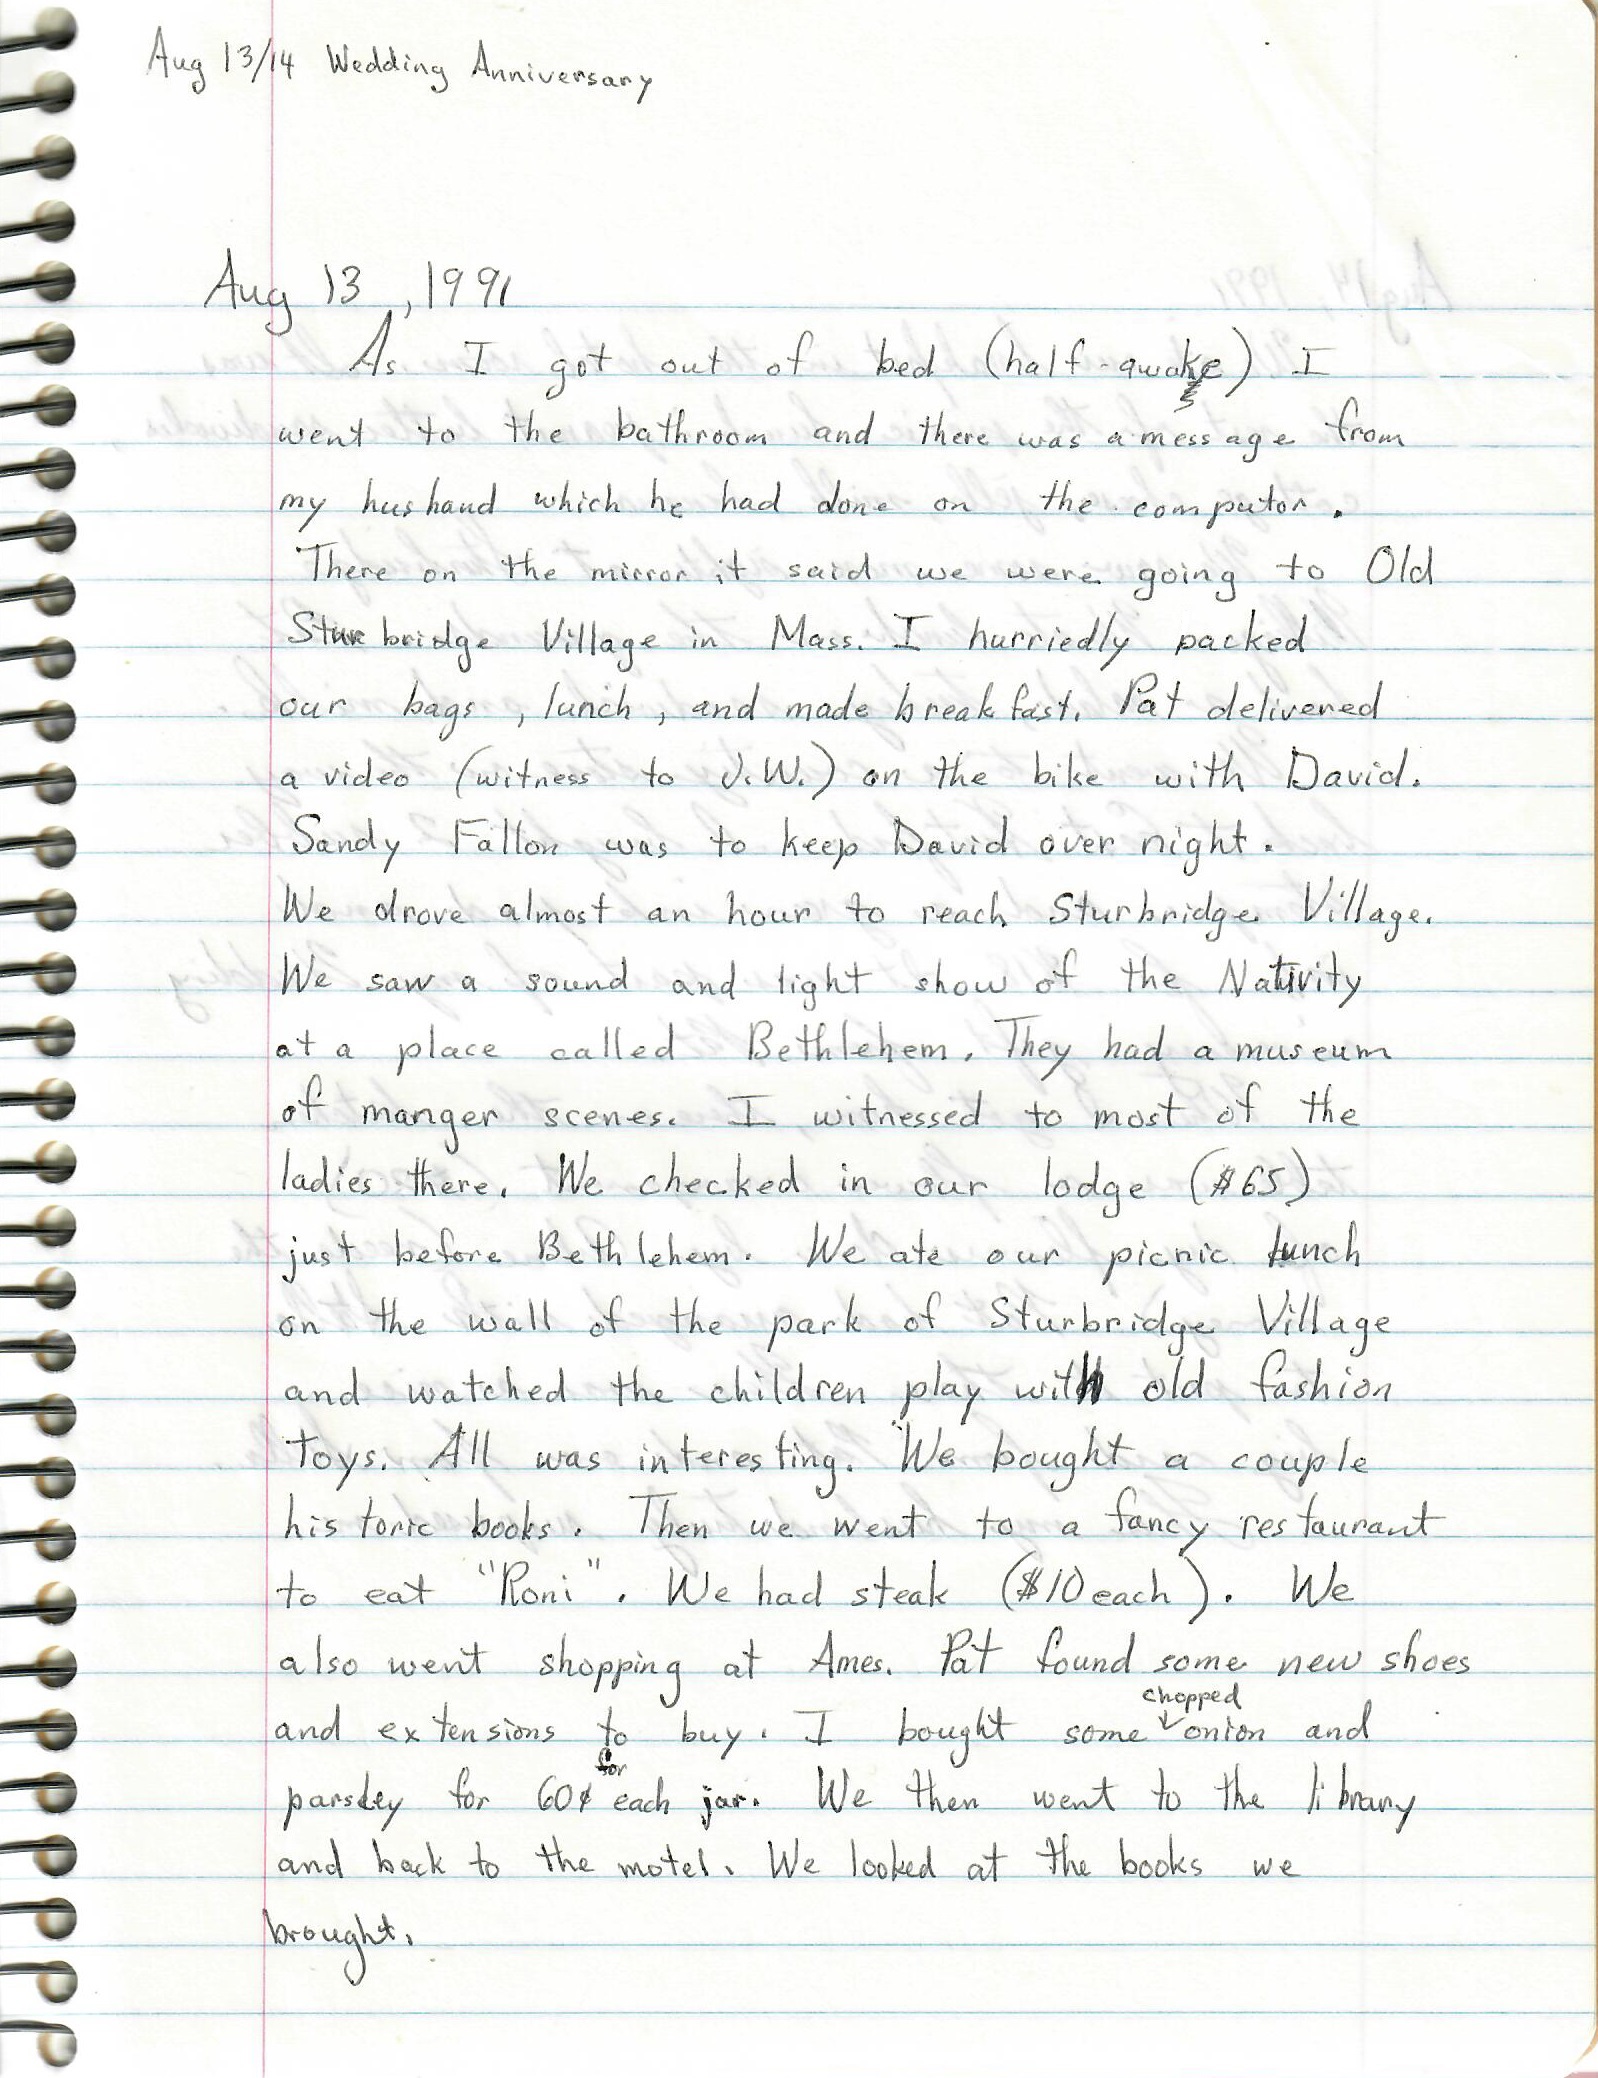 Aug 13/14 Wedding Anniversary
Aug 13, 1991
As I got out of bed (half-awake) I
went to the bathroom and there was a message from
my husband which he had done on the computor.
There on the mirror it said we were going to Old
Sturbridge Village in Mass. I hurriedly packed
our bags, lunch, and made breakfast. Pat delivered
a video (witness to J.W.) on the bike with David.
Sandy Fallon was to keep David over night.
We drove almost an hour to reach Sturbridge Village.
We saw a sound and light show of the Nativity
at a place called Bethlehem. They had a museum
of manger scenes. I witnessed to most of the
ladies there. We checked in our lodge ($65)
just before Bethlehem. We ate our picnic lunch
on the wall of the park of Sturbridge Village
and watched the children play with old fashion
toys. All was interesting. We bought a couple
historic books. Then we went to a fancy restaurant
to eat "Roni". We had steak ($10 each). We
also went shopping at Ames. Pat found some new shoes
chopped
and extensions to buy. I bought some onion and
for
parsley for 60¢ each jar. We then went to the library
and back to the motel. We looked at the books we
brought.